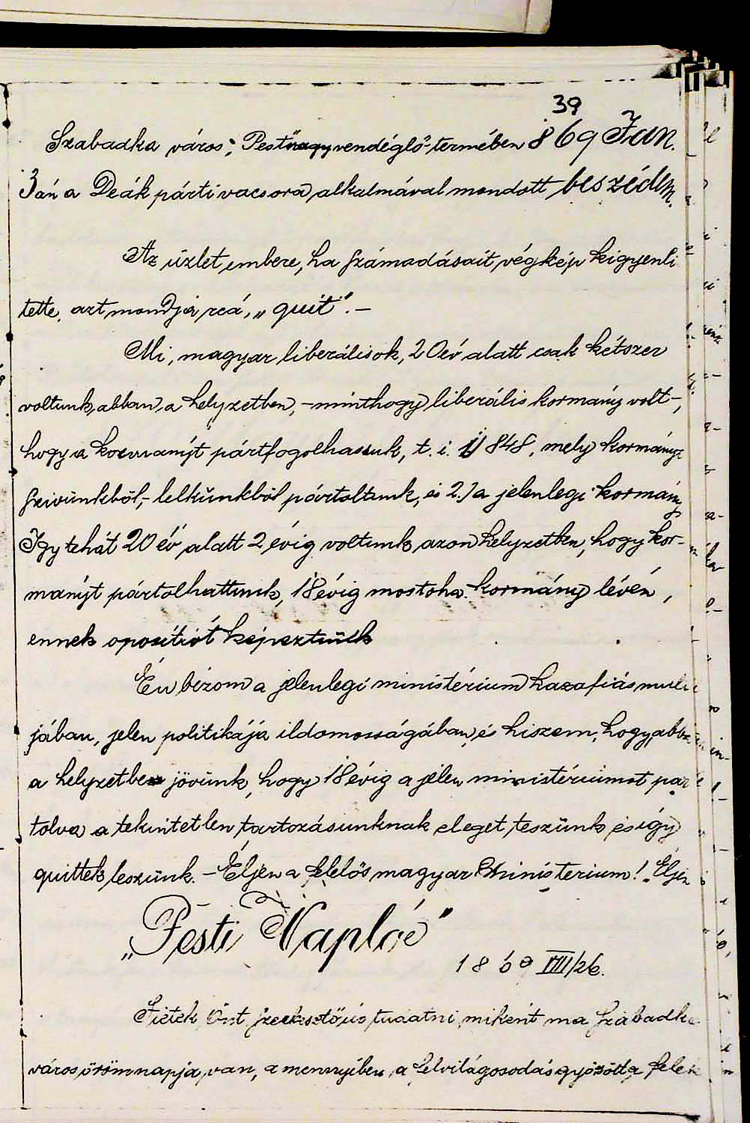 39
Szabadka város „Pest" nagyvendéglő-termében 869 Jan.
3án a Deák párti vacsora, alkalmával mondott beszédem.
Az üzlet embere, ha számadásait végkép kigyenli
tette, azt mondja reá, „quit". –
Mi, magyar liberálisok, 20 év alatt csak kétszer
voltunk, abban, a helyzetben, – minthogy liberális kormány volt –,
hogy a kormányt pártfogolhassuk, t. i. 1) 848, mely kormányt
szivünkből, – lelkünkből pártoltunk, és 2.) a jelenlegi kormány
Igy tehát 20 év alatt 2 évig voltunk azon helyzetben, hogy kor-
mányt pártolhattunk, 18 évig mostoha kormány lévén,
ennek opositiót képeztünk
Én bizom a jelenlegi ministérium hazafias
jában, jelen politikája ildomosságában, és hiszem, hogy
a helyzetben jövünk, hogy 18 évig a jelen ministériumot pár
tolva a tekintetlen tartozásunknak eleget teszünk és így
quittek leszünk. – Éljen a felelős magyar Ministerium! Éljen
„Pesti Naplóé"
1869 VIII/26.
Sietek Önt szerkesztő úr tudatni, miként ma Szabadka
város örömnapja, van, a mennyiben, a felvilágosodás győzött a